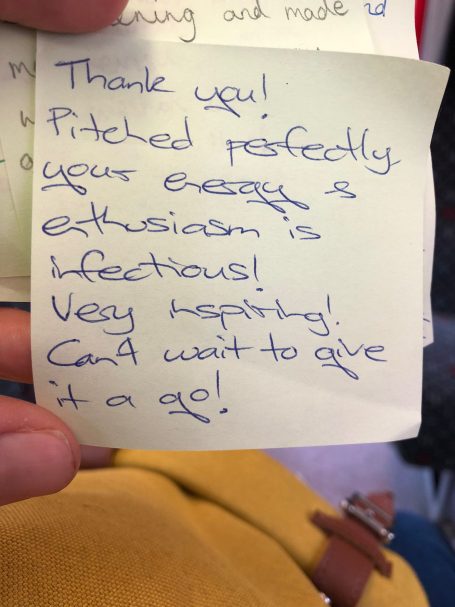 ning and made
Thank you!
Pitched perfectly
your energy &
enthusiasm is
infectious!
Very inspiring!
Can't wait to give
it a go!